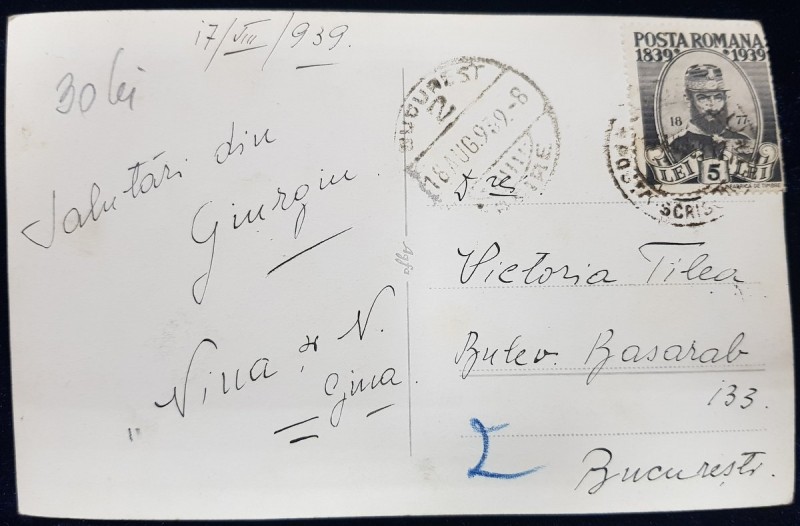 17/VIII/939.
30 lei
Salutări din
Giurgiu.
Nina și N.
Gina.
Agfa
BUCUREST
2
18 AUG. 939.-8
POSTA ROMANA
1839 1939
18 77
LEI 5 LEI
SCRIS
D. rei
Victoria Tilea
Bulev. Basarab
133.
București.